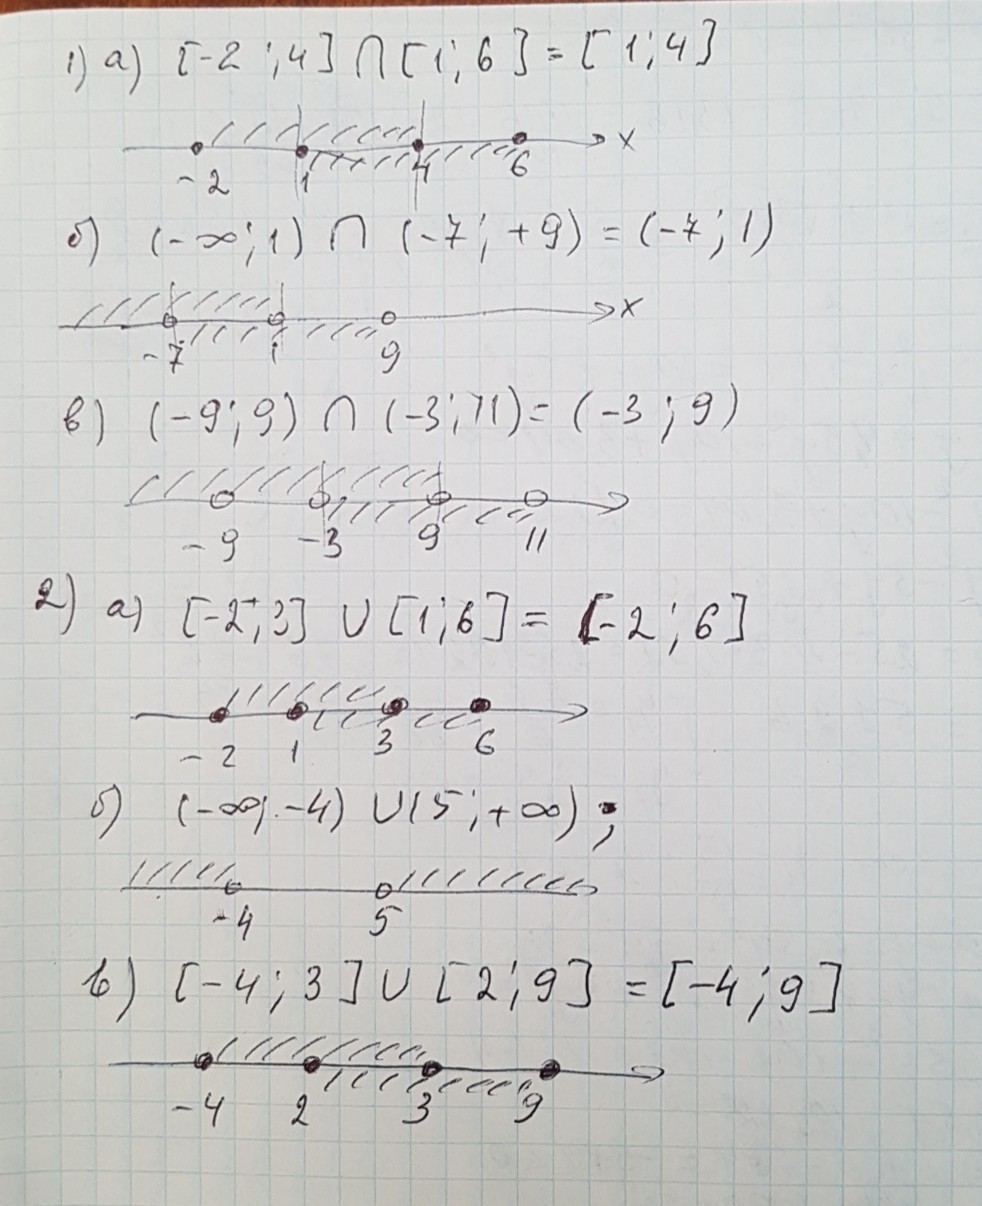 1) а) [-2 ; 4] ∩ [1; 6] = [1; 4]
-2 1 4 6 x
б) (-∞; 1) ∩ (-7; +9) = (-7; 1)
-7 1 9 x
в) (-9; 9) ∩ (-3; 11) = (-3; 9)
-9 -3 9 11
2) а) [-2; 3] ∪ [1; 6] = [-2; 6]
-2 1 3 6
б) (-∞; -4) ∪ (5; +∞) ;
-4 5
в) [-4; 3] ∪ [2; 9] = [-4; 9]
-4 2 3 9